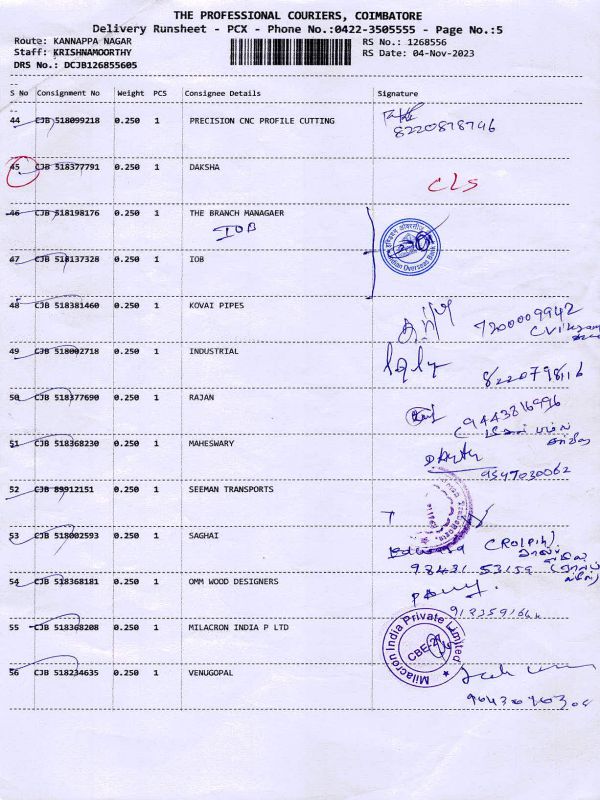 THE PROFESSIONAL COURIERS, COIMBATORE
Delivery Runsheet - PCX - Phone No.:0422-3505555 - Page No.:5
Route: KANNAPPA NAGAR
RS No.: 1268556
Staff: KRISHNAMOORTHY
RS Date: 04-Nov-2023
DRS No.: DCJB126855605
S No Consignment No Weight PCS Consignee Details Signature
44 CJB 518099218 0.250 1 PRECISION CNC PROFILE CUTTING
8220878746
45 CJB 518377791 0.250 1 DAKSHA
CLS
46 CJB 518198176 0.250 1 THE BRANCH MANAGAER
IOB
Indian Overseas Bank
47 CJB 518137328 0.250 1 IOB
48 CJB 518381460 0.250 1 KOVAI PIPES
7200009942
49 CJB 518002718 0.250 1 INDUSTRIAL
8220798116
50 CJB 518377690 0.250 1 RAJAN
9443816996
51 CJB 518368230 0.250 1 MAHESWARY
9597030062
52 CJB 89912151 0.250 1 SEEMAN TRANSPORTS
53 CJB 518002593 0.250 1 SAGHAI
98431 53159
54 CJB 518368181 0.250 1 OMM WOOD DESIGNERS
55 CJB 518368208 0.250 1 MILACRON INDIA P LTD
Milacron India Private Limited
CBE-29
56 CJB 518234635 0.250 1 VENUGOPAL